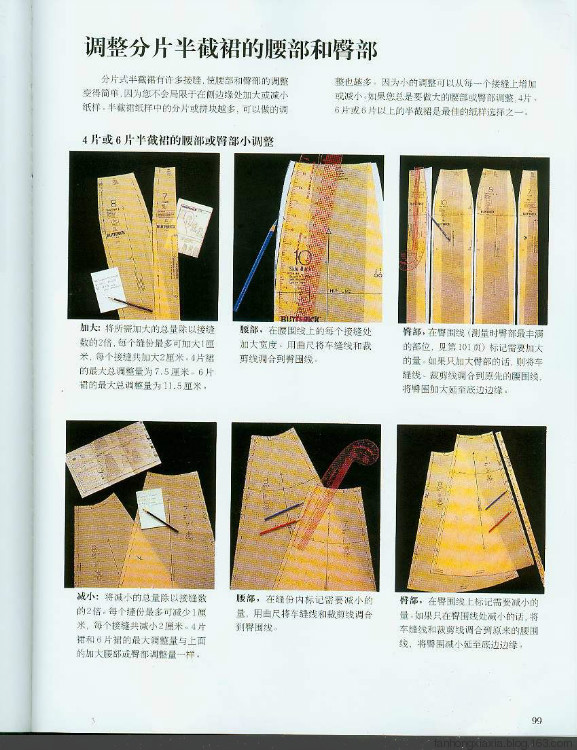 调整分片半截裙的腰部和臀部
分片式半截裙有许多接缝,使腰部和臀部的调整
变得简单,因为您不会局限于在侧边缘处加大或减小
纸样。半截裙纸样中的分片或拼块越多,可以做的调
整也越多。因为小的调整可以从每一个接缝上增加
或减小,如果您总是要做大的腰部或臀部调整,4片、
6片或6片以上的半截裙是最佳的纸样选择之一。
4片或6片半截裙的腰部或臀部小调整
加大:将所需加大的总量除以接缝
数的2倍,每个缝份最多可加大1厘
米,每个接缝共加大2厘米。4片裙
的最大总调整量为7.5厘米。6片
裙的最大总调整量为11.5厘米。
腰部。在腰围线上的每个接缝处
加大宽度。用曲尺将车缝线和裁
剪线调合到臀围线。
臀部。在臀围线(测量时臀部最丰满
的部位,见第101页)标记需要加大
的量。如果只加大臀部的话,则将车
缝线、裁剪线调合到原先的腰围线,
将臀围加大延至底边边缘。
减小:将减小的总量除以接缝数
的2倍。每个缝份最多可减少1厘
米,每个接缝共减小2厘米。4片
裙和6片裙的最大调整量与上面
的加大腰部或臀部调整量一样。
腰部。在缝份内标记需要减小的
量,用曲尺将车缝线和裁剪线调合
到臀围线。
臀部。在臀围线上标记需要减小的
量。如果只在臀围线处减小的话,将
车缝线和裁剪线调合到原来的腰围
线,将臀围减小延至底边边缘。
99